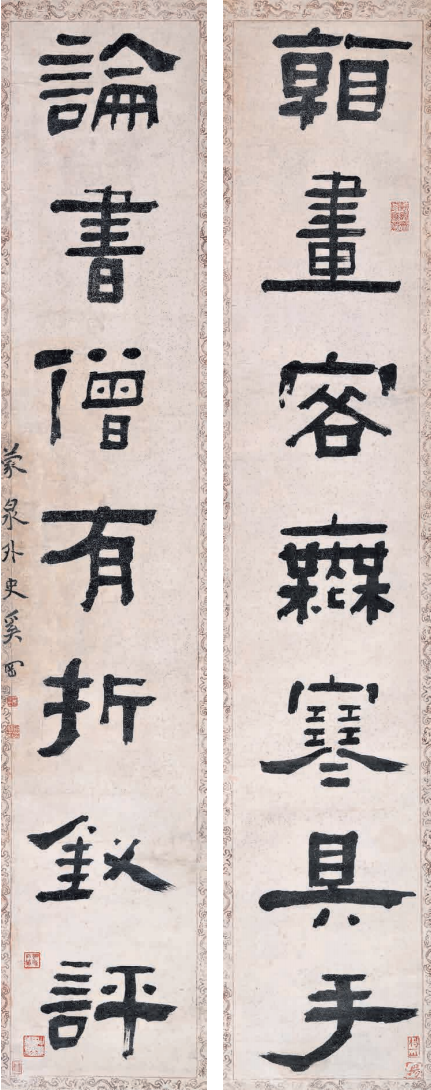 看畫客無寒具手
論書僧有折釵評
蒙泉外史奚冈